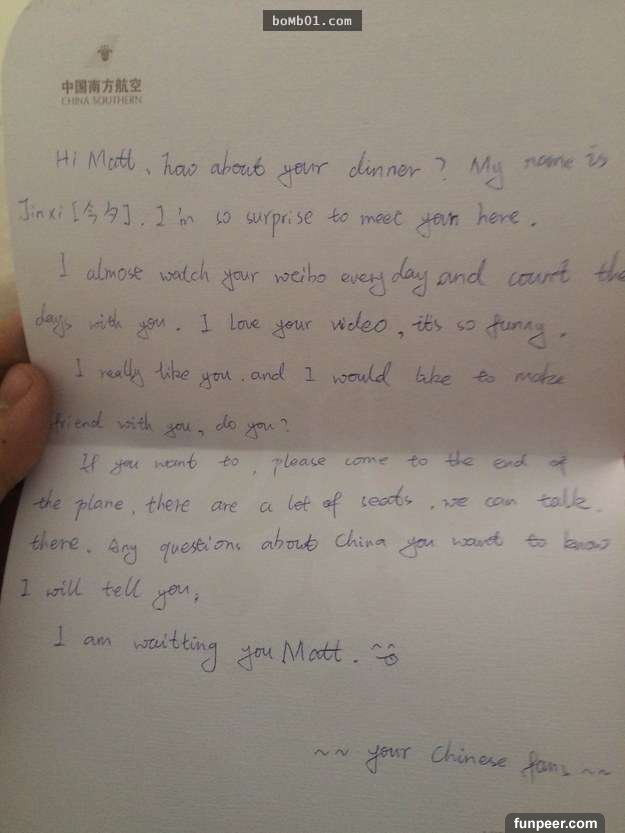 boMb01.com
中国南方航空
CHINA SOUTHERN
Hi Matt, how about your dinner? My name is
Jinxi [今夕]. I'm so surprise to meet you here.
I almose watch your weibo everyday and count the
days with you. I love your video, it's so funny.
I really like you. and I would like to make
friend with you, do you?
If you want to, please come to the end of
the plane, there are a lot of seats, we can talk.
there. Any questions about China you want to know
I will tell you,
I am waitting you Matt.
~~ your Chinese fans ~~
funpeer.com